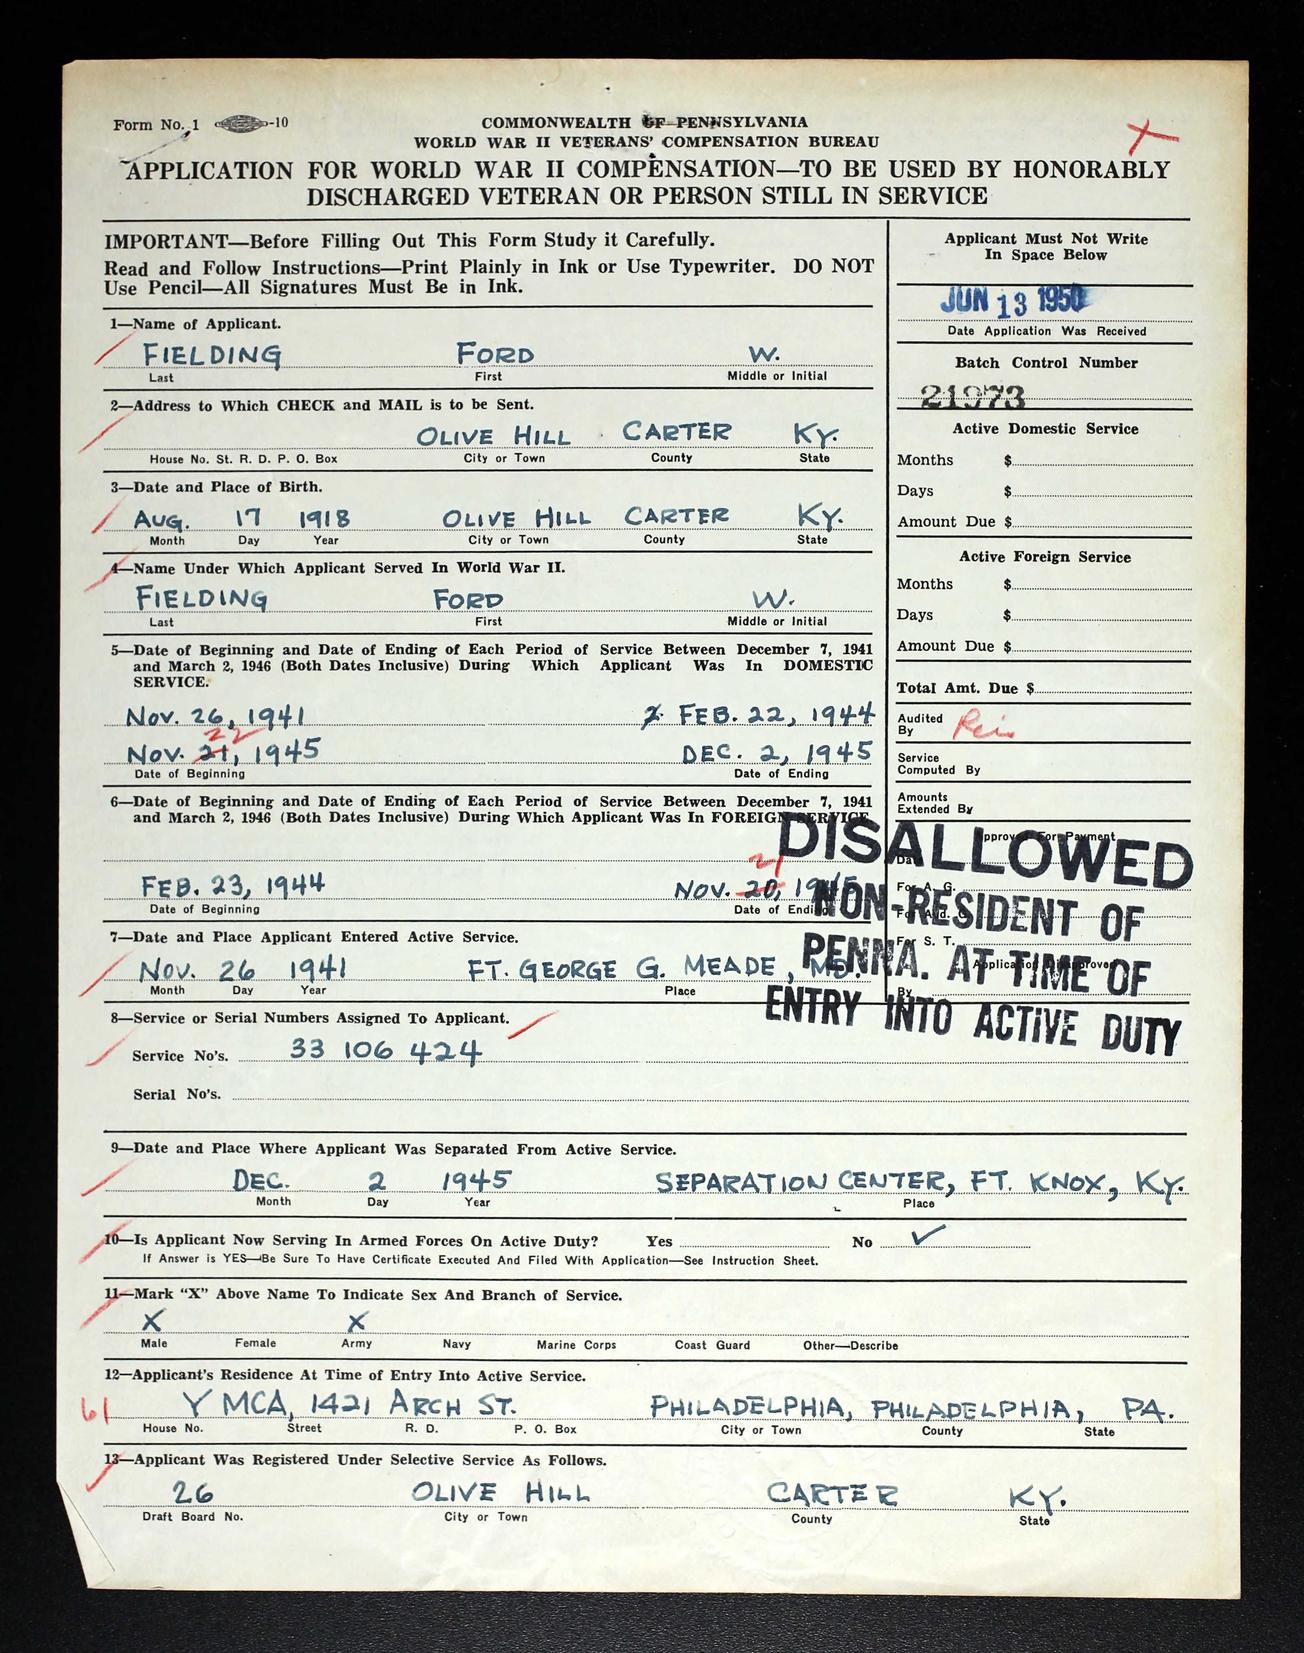 Form No. 1 -10
COMMONWEALTH OF PENNSYLVANIA
WORLD WAR II VETERANS' COMPENSATION BUREAU
APPLICATION FOR WORLD WAR II COMPENSATION—TO BE USED BY HONORABLY
DISCHARGED VETERAN OR PERSON STILL IN SERVICE
IMPORTANT—Before Filling Out This Form Study it Carefully.
Read and Follow Instructions—Print Plainly in Ink or Use Typewriter. DO NOT
Use Pencil—All Signatures Must Be in Ink.
1—Name of Applicant.
FIELDING FORD W.
Last First Middle or Initial
2—Address to Which CHECK and MAIL is to be Sent.
OLIVE HILL CARTER KY.
House No. St. R. D. P. O. Box City or Town County State
3—Date and Place of Birth.
AUG. 17 1918 OLIVE HILL CARTER KY.
Month Day Year City or Town County State
4—Name Under Which Applicant Served In World War II.
FIELDING FORD W.
Last First Middle or Initial
5—Date of Beginning and Date of Ending of Each Period of Service Between December 7, 1941
and March 2, 1946 (Both Dates Inclusive) During Which Applicant Was In DOMESTIC
SERVICE.
NOV. 26, 1941 FEB. 22, 1944
22
NOV. 21, 1945 DEC. 2, 1945
Date of Beginning Date of Ending
6—Date of Beginning and Date of Ending of Each Period of Service Between December 7, 1941
and March 2, 1946 (Both Dates Inclusive) During Which Applicant Was In FOREIGN SERVICE.
21
FEB. 23, 1944 NOV. 20, 1945
Date of Beginning Date of Ending
7—Date and Place Applicant Entered Active Service.
NOV. 26 1941 FT. GEORGE G. MEADE, MD.
Month Day Year Place
Applicant Must Not Write
In Space Below
JUN 13 1950
Date Application Was Received
Batch Control Number
21973
Active Domestic Service
Months $
Days $
Amount Due $
Active Foreign Service
Months $
Days $
Amount Due $
Total Amt. Due $
Audited
By
Service
Computed By
Amounts
Extended By
Approved For Payment
Date
For A. G.
For Aud. G.
For S. T.
Application Disapproved
By
DISALLOWED
NON-RESIDENT OF
PENNA. AT TIME OF
ENTRY INTO ACTIVE DUTY
8—Service or Serial Numbers Assigned To Applicant.
Service No's. 33 106 424
Serial No's.
9—Date and Place Where Applicant Was Separated From Active Service.
DEC. 2 1945 SEPARATION CENTER, FT. KNOX, KY.
Month Day Year Place
10—Is Applicant Now Serving In Armed Forces On Active Duty? Yes No ✓
If Answer is YES—Be Sure To Have Certificate Executed And Filed With Application—See Instruction Sheet.
11—Mark "X" Above Name To Indicate Sex And Branch of Service.
X X
Male Female Army Navy Marine Corps Coast Guard Other—Describe
12—Applicant's Residence At Time of Entry Into Active Service.
61 YMCA, 1421 ARCH ST. PHILADELPHIA, PHILADELPHIA, PA.
House No. Street R. D. P. O. Box City or Town County State
13—Applicant Was Registered Under Selective Service As Follows.
26 OLIVE HILL CARTER KY.
Draft Board No. City or Town County State